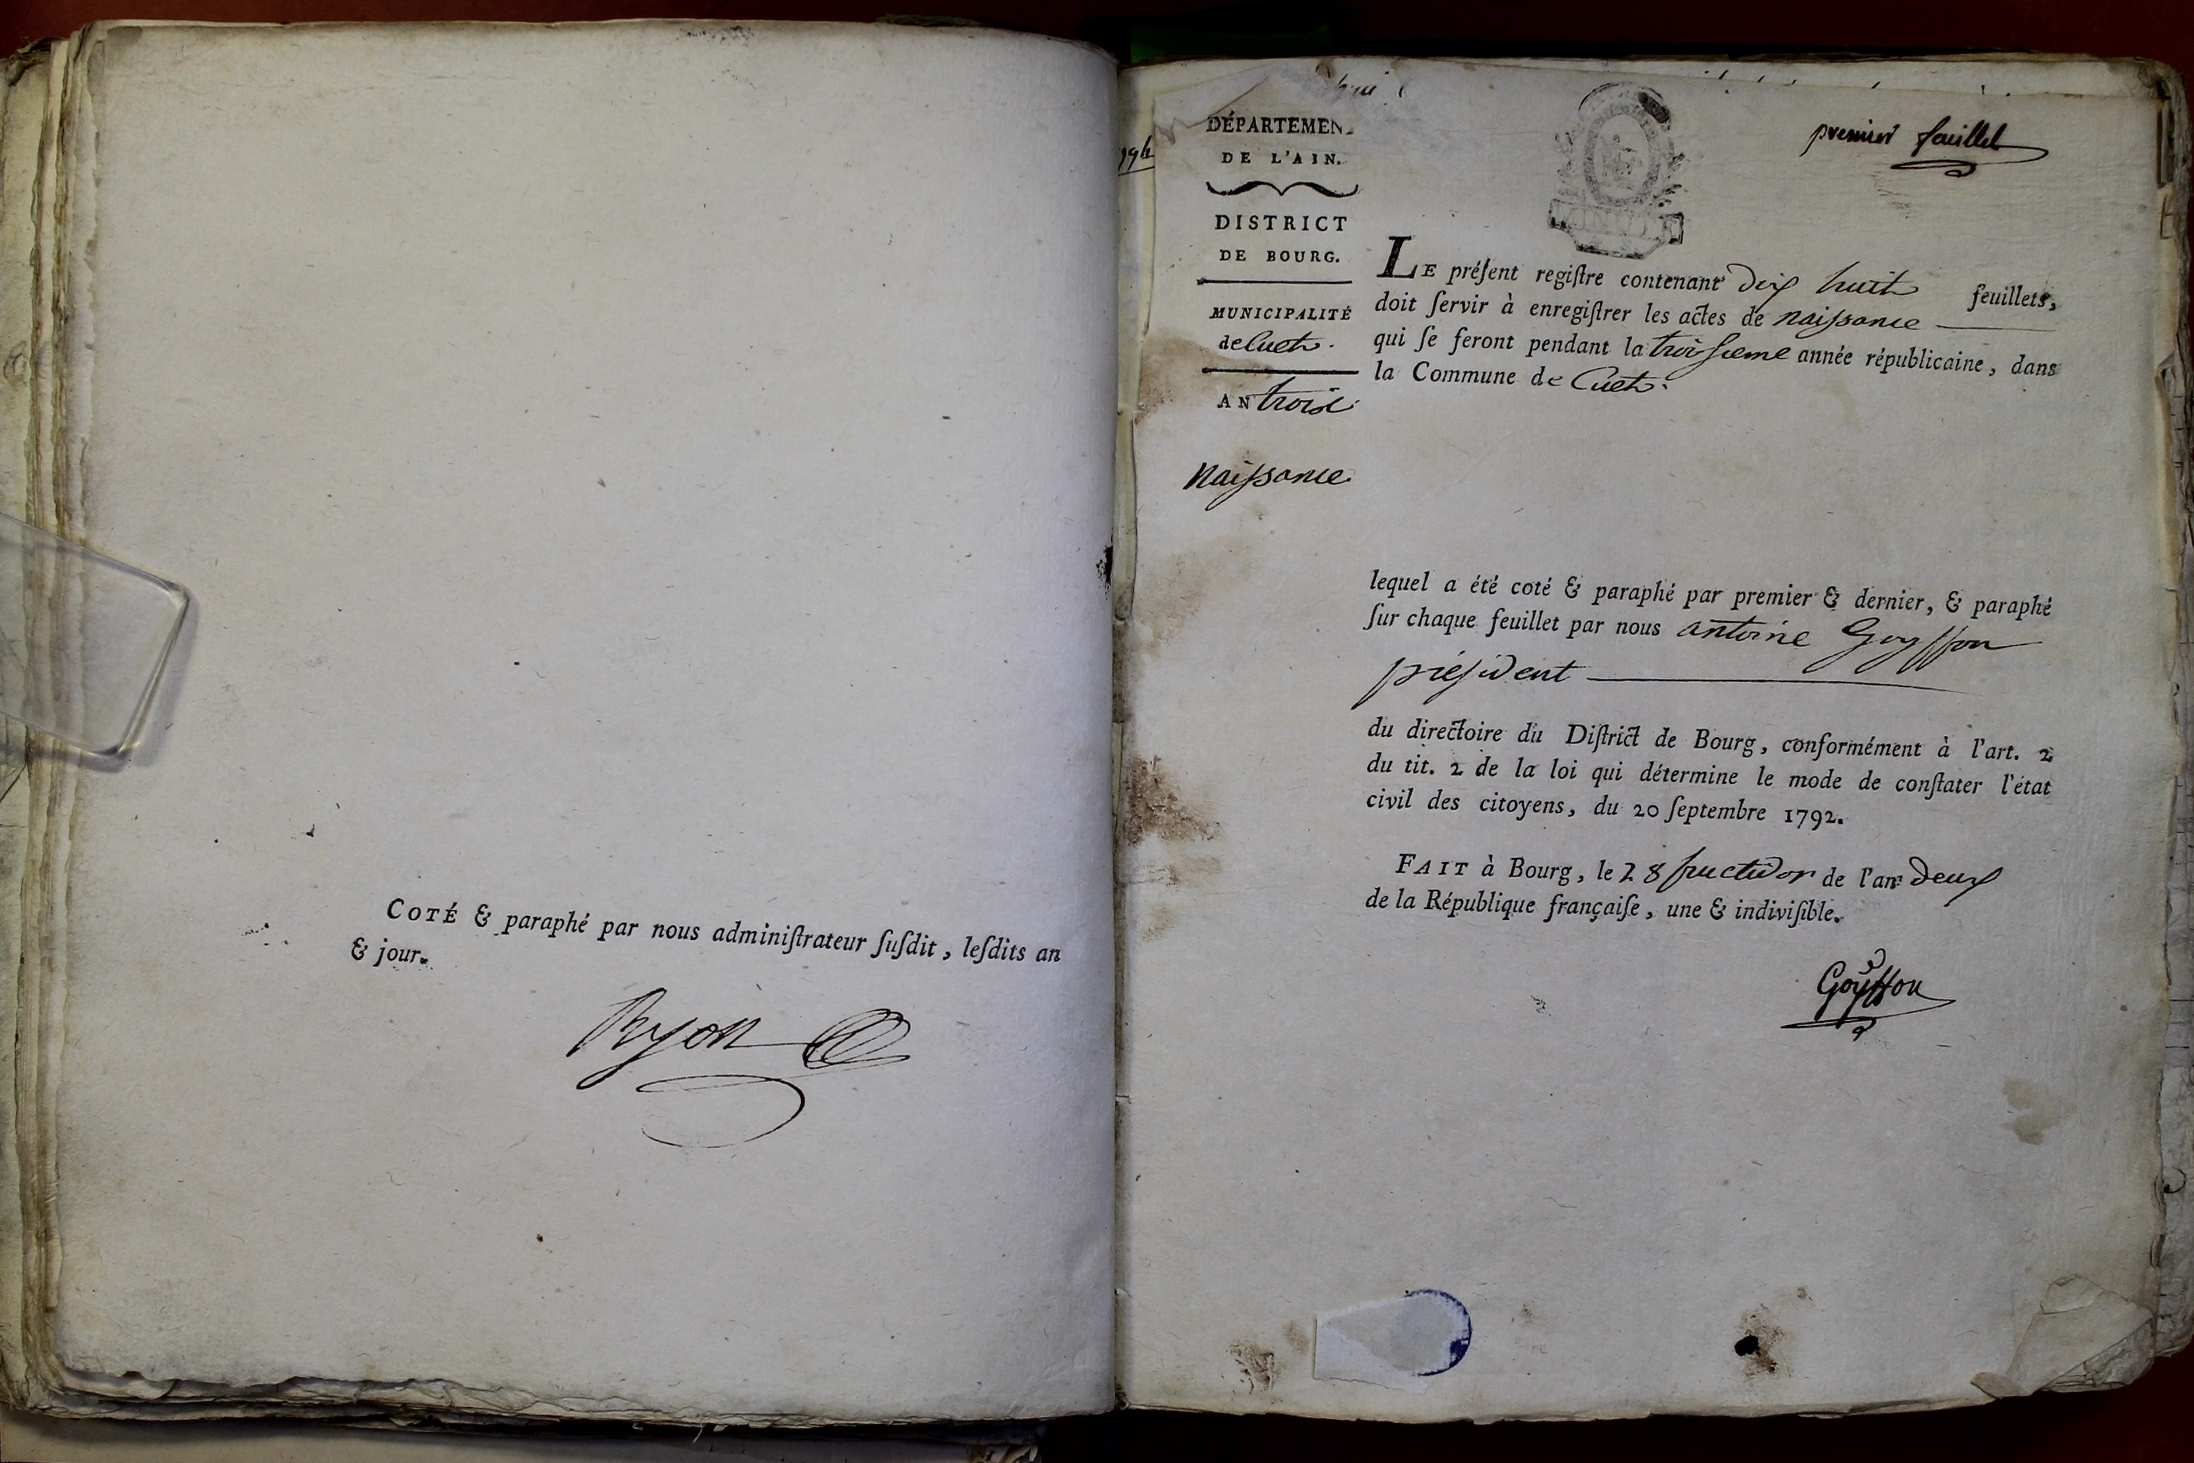 COTÉ & paraphé par nous adminiſtrateur ſuſdit, leſdits an
& jour.
Ryon
DÉPARTEMEN
DE L'AIN.
DISTRICT
DE BOURG.
MUNICIPALITÉ
de Cuet.
AN trois
Naissance
premier feuillet
LE préſent regiſtre contenant dix huit feuillets,
doit ſervir à enregiſtrer les actes de naissance
qui ſe feront pendant la troisieme année républicaine, dans
la Commune de Cuet.
lequel a été coté & paraphé par premier & dernier, & paraphé
ſur chaque feuillet par nous antoine Goyffon
président
du directoire du Diſtrict de Bourg, conformément à l'art. 2
du tit. 2 de la loi qui détermine le mode de conſtater l'état
civil des citoyens, du 20 ſeptembre 1792.
FAIT à Bourg, le 28 fructidor de l'an deux
de la République françaiſe, une & indiviſible.
Goyffon